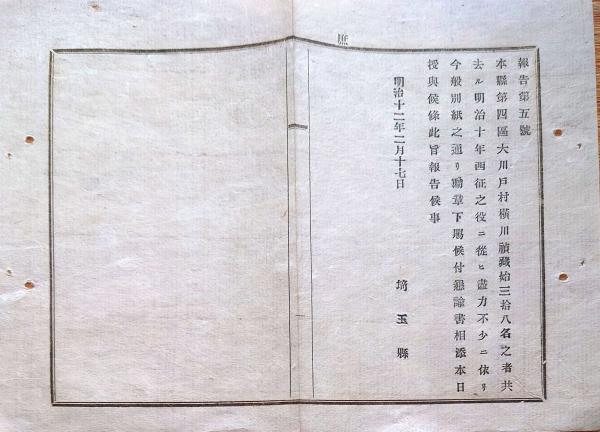 庶
報告第五號
本縣第四區大川戸村横川禎藏始三拾八名之者共
去ル明治十年西征之役ニ從ヒ盡力不少ニ依リ
今般別紙之通リ勳章下賜候付懇諭書相添本日
授與候條此旨報告候事
明治十二年二月十七日
埼玉縣